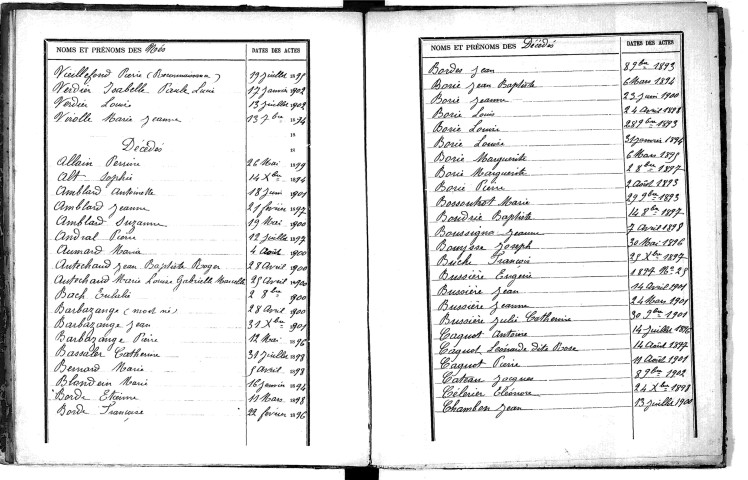 NOMS ET PRÉNOMS DES Nés DATES DES ACTES
Vieillefond Pierre (Reconnaissance) 19 juillet 1895
Verdier Isabelle Paule Lucie 17 janvier 1902
Verdier Louis 13 juillet 1902
Virolle Marie Jeanne 13 7bre 1894
18
Décédés 18
Allain Perrine 26 Mai 1899
Alt Sophie 14 Xbre 1894
Amblard Antoinette 18 juin 1901
Amblard Jeanne 21 février 1897
Amblard Suzanne 19 Mai 1900
Andral Pierre 12 juillet 1897
Aumard Maria 4 Août 1900
Autechaud Jean Baptiste Roger 28 Avril 1900
Autechaud Marie Louise Gabrielle Marcelle 25 Avril 1900
Bach Eulalie 2 8bre 1900
Barbazange (mort né) 28 Avril 1900
Barbazange Jean 31 Xbre 1901
Barbazange Pierre 12 Mai 1896
Bassaler Catherine 31 juillet 1893
Bernard Marie 5 Avril 1893
Blondeu Marie 16 janvier 1894
Borde Etienne 11 Mars 1898
Borde Françoise 22 février 1896
NOMS ET PRÉNOMS DES Décédés DATES DES ACTES
Bordes Jean 8 9bre 1893
Borie Jean Baptiste 6 Mars 1894
Borie Jeanne 23 juin 1900
Borie Louis 24 Avril 1898
Borie Louise 28 9bre 1893
Borie Louise 31 janvier 1894
Borie Marguerite 6 Mars 1895
Borie Marguerite 2 8bre 1897
Borie Pierre 2 Août 1893
Bossoutrot Marie 29 9bre 1893
Boudrie Baptiste 14 8bre 1897
Boussignà Jeanne 7 Avril 1898
Bouysse Joseph 30 Mai 1896
Buche François 25 Xbre 1897
Bussière Eugénie 1897 No 25
Bussière Jean 14 Avril 1901
Bussière Jeanne 24 Mars 1901
Bussière Julie Catherine 30 9bre 1901
Caquot Antoine 14 juillet 1896
Caquot Léonarde dite Rose 14 Août 1897
Caquot Pierre 11 Août 1901
Cateau Jacques 8 9bre 1902
Célerier Eléonore 24 Xbre 1898
Chambon Jean 13 juillet 1900